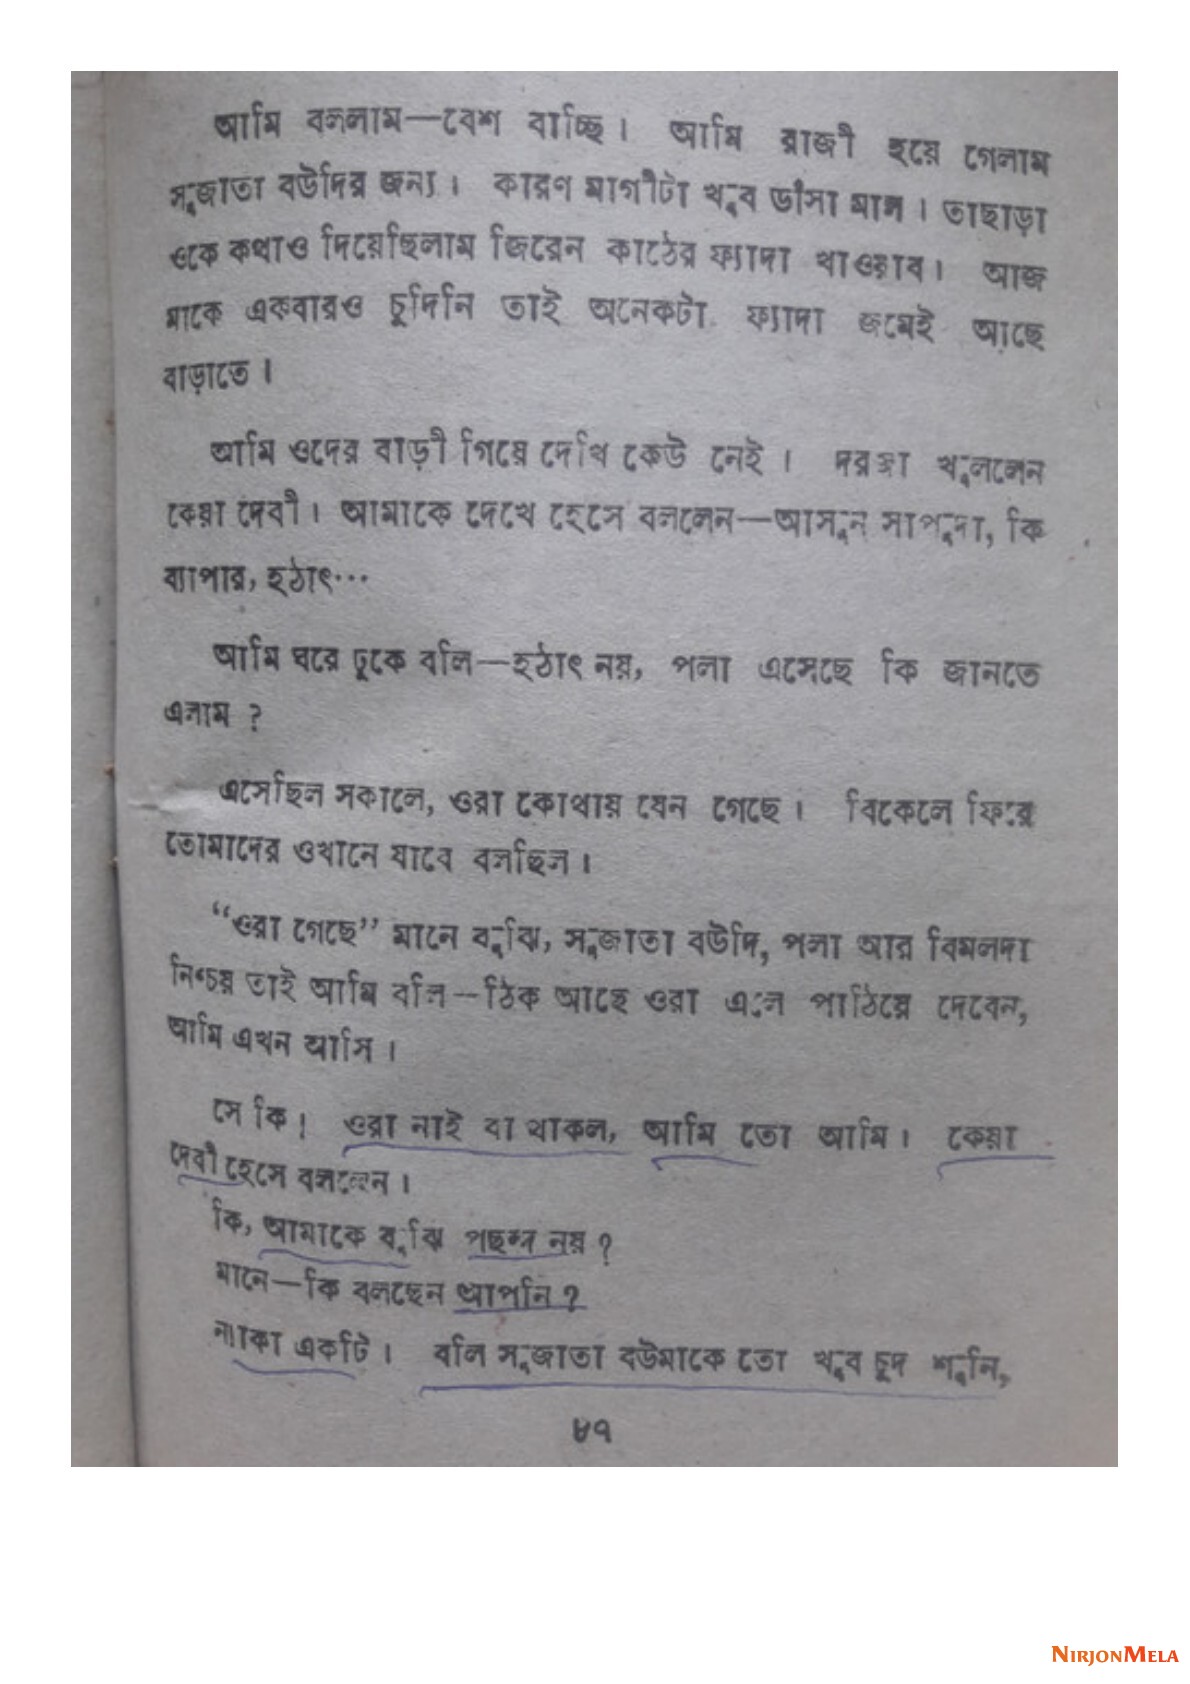 আমি বললাম—বেশ যাচ্ছি। আমি রাজী হয়ে গেলাম
সুজাতা বউদির জন্য। কারণ মাগীটা খুব ডাঁসা মাল। তাছাড়া
ওকে কথাও দিয়েছিলাম জিরেন কাঠের ফ্যাদা খাওয়াব। আজ
মাকে একবারও চুদিনি তাই অনেকটা ফ্যাদা জমেই আছে
বাড়াতে।
আমি ওদের বাড়ী গিয়ে দেখি কেউ নেই। দরজা খুললেন
কেয়া দেবী। আমাকে দেখে হেসে বললেন—আসুন সাপুদা, কি
ব্যাপার, হঠাৎ...
আমি ঘরে ঢুকে বলি—হঠাৎ নয়, পলা এসেছে কি জানতে
এলাম ?
এসেছিল সকালে, ওরা কোথায় যেন গেছে। বিকেলে ফিরে
তোমাদের ওখানে যাবে বলছিল।
“ওরা গেছে” মানে বুঝি, সুজাতা বউদি, পলা আর বিমলদা
নিশ্চয় তাই আমি বলি—ঠিক আছে ওরা এলে পাঠিয়ে দেবেন,
আমি এখন আসি।
সে কি! ওরা নাই বা থাকল, আমি তো আমি। কেয়া
দেবী হেসে বললেন।
কি, আমাকে বুঝি পছন্দ নয় ?
মানে—কি বলছেন আপনি ?
ন্যাকা একটি। বলি সুজাতা বউমাকে তো খুব চুদ শুনি,
৮৭
NIRJONMELA